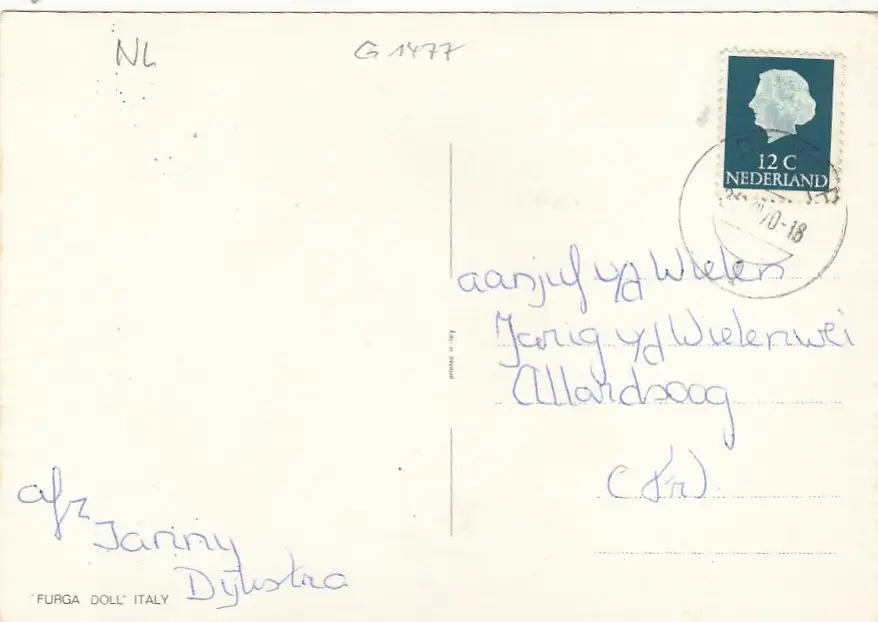 NL
G 1477
12 C
NEDERLAND
70-18
aan juf v/d Wielen
Jarig v/d Wielenwei
Allardsoog
(Fr)
printed in Italy
afz
Janny
Dijkstra
"FURGA DOLL" ITALY